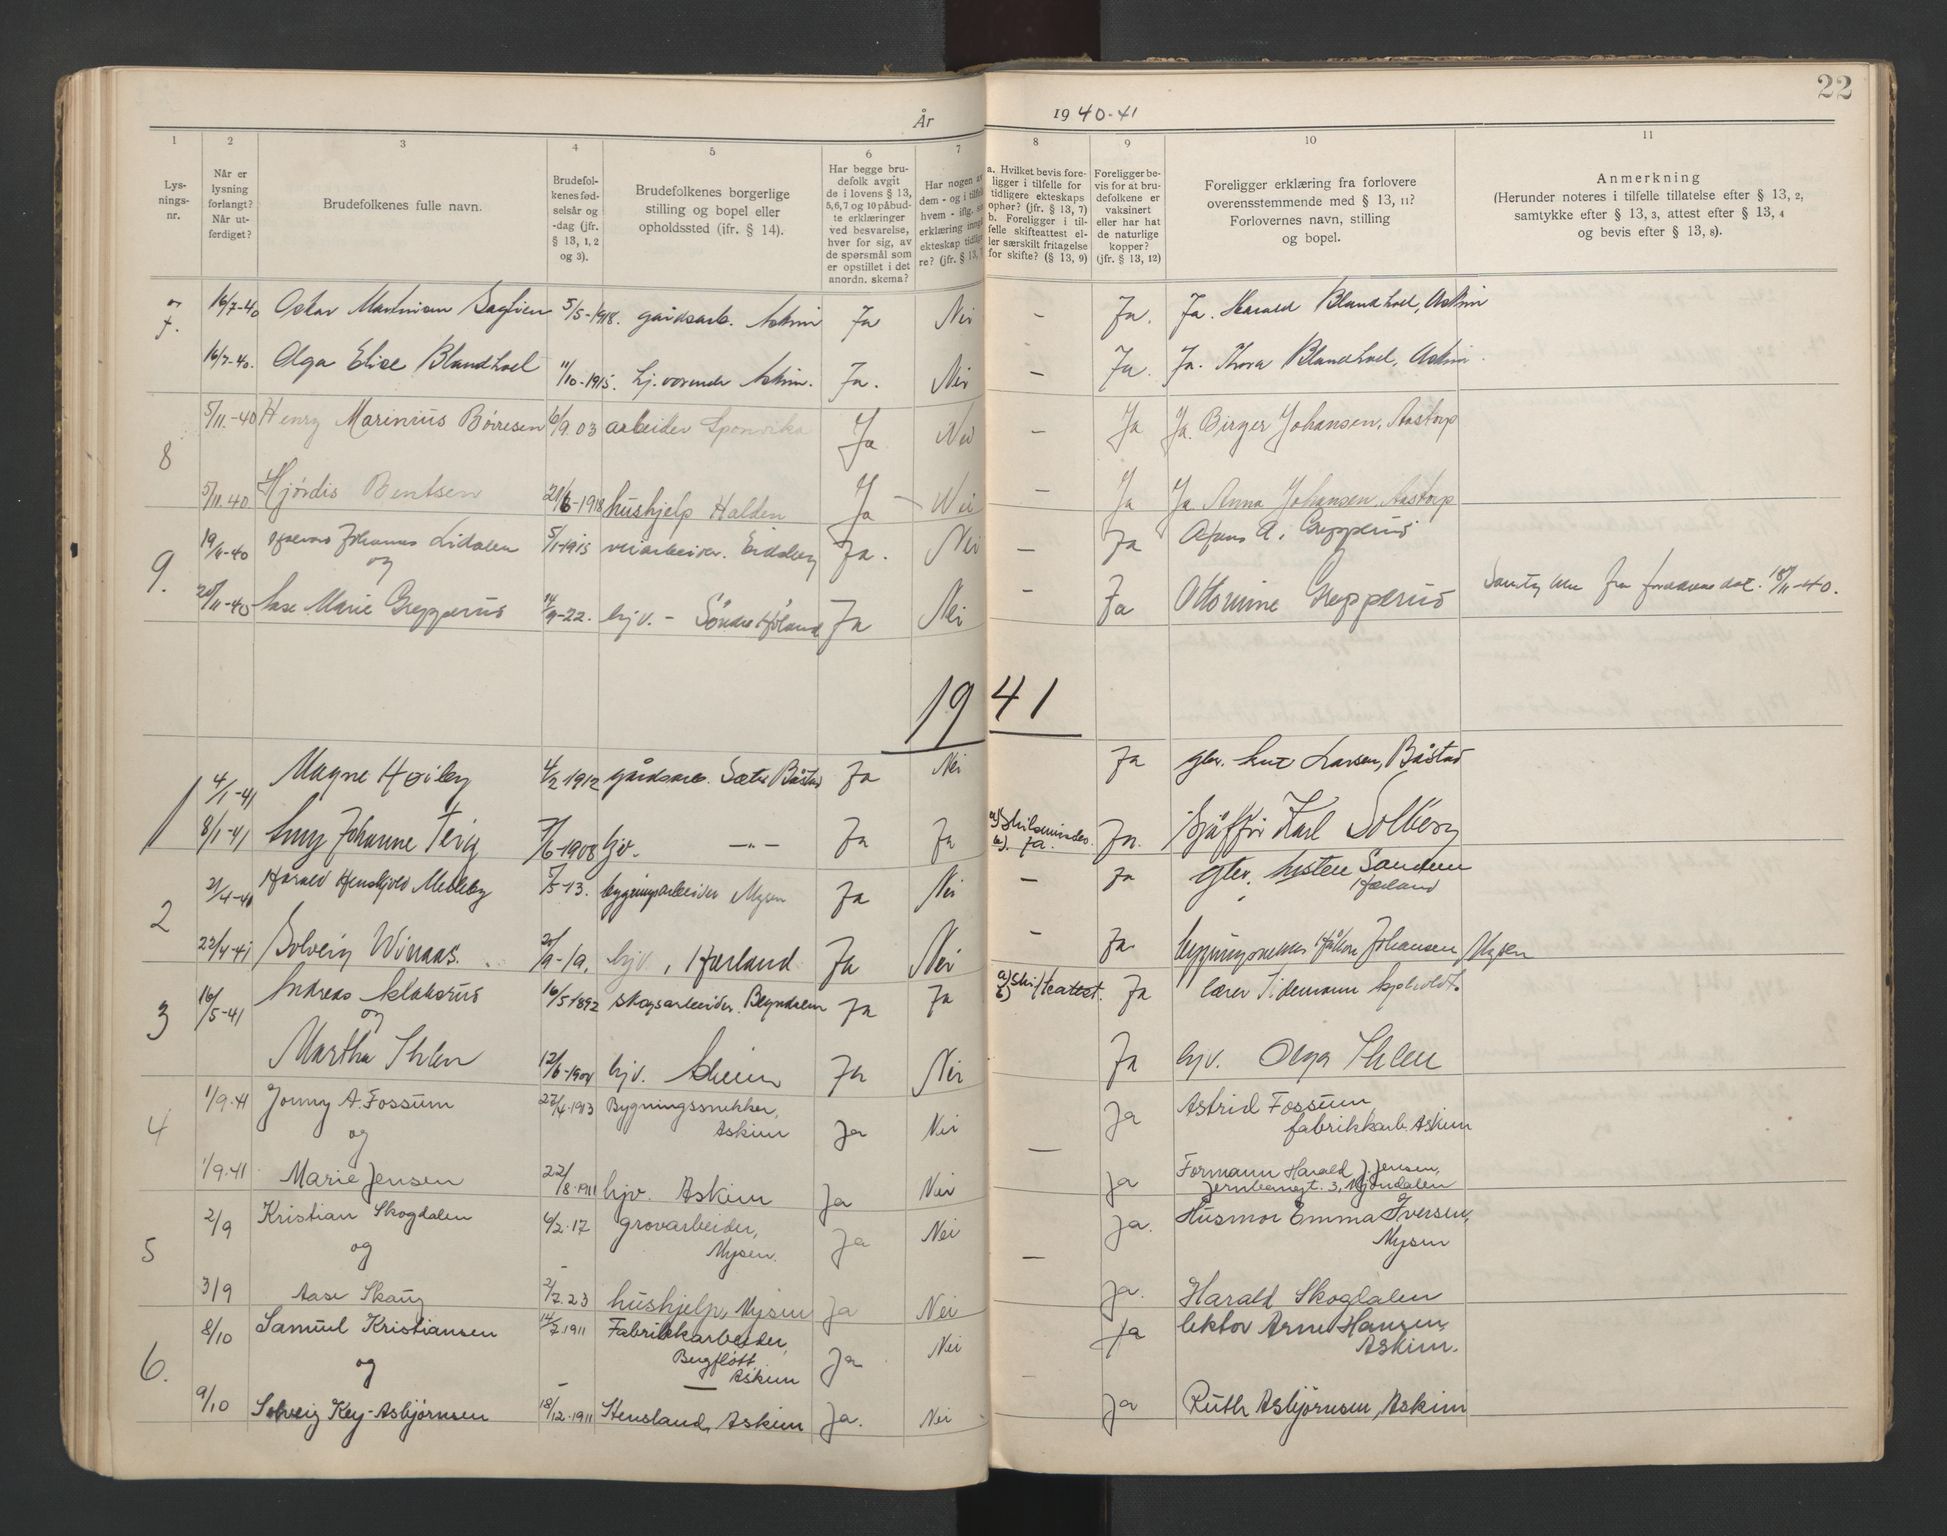 22
År 1940-41
1 2 3 4 5 6 7 8 9 10 11
Lys-
nings-
nr.
Når er
lysning
forlangt?
Når ut-
ferdiget?
Brudefolkenes fulle navn.
Brudefol-
kenes fød-
selsår og
-dag (jfr.
§ 13, 1, 2
og 3).
Brudefolkenes borgerlige
stilling og bopel eller
opholdssted (ifr. § 14).
Har begge bru-
defolk avgit
de i lovens § 13,
5,6,7 og 10 påbud-
te erklæringer
ved besvarelse,
hver for sig, av
de spørsmål som
er opstillet i det
anordn. skema?
Har nogen av
dem - og i tilfelle
hvem - iflg.
erklæring inngått
ekteskap tidlige-
re? (jfr. § 13,
a. Hvilket bevis fore-
ligger i tilfelle for
tidligere ekteskaps
ophør? (jfr. § 13, 7)
b. Foreligger i til-
felle skifteattest el-
ler særskilt fritagelse
for skifte? (§ 13, 9)
Foreligger be-
vis for at bru-
defolkene er
vaksinert
eller har hat
de naturlige
kopper?
(jfr. § 13, 12)
Foreligger erklæring fra forlovere
overensstemmende med § 13, 11?
Forlovernes navn, stilling
og bopel.
Anmerkning
(Herunder noteres i tilfelle tillatelse efter § 13, 2,
samtykke efter § 13, 3, attest efter § 13, 4
og bevis efter § 13, 8).
7. 16/7-40 Oskar Martinsen 5/5-1918. gårdsarb. Askim Ja Nei - Ja. Ja. Harald Blandhoel, Askim
og
16/7-40. Olga Elise Blandhoel 11/10-1915. hj.værende Askim. Ja. Nei - Ja. Ja. Thora Blandhoel, Askim.
8 5/11.-40 Henry Marinius Børresen 6/9.03 arbeider Sponvika Ja Nei - Ja Ja. Birger Johansen, Aastorp
5/11.40 Hjørdis Bentsen 1918 hushjelp Halden Ja - Nei - Ja Ja Anna Johansen, Aastorp
9. 19/11-40 Johannes Lidalen 5/1-1915 veiarbeider. Eidsberg Ja. Nei - Ja Grepperud
og
20/11-40 Aase Marie Grepperud 14/9-22. hjv. - Søndre Høland Ja Nei - Ja Ottomine Grepperud Samtykke fra foreldrene dat. 18/11-40.
1941
1 4/1-41 Magne Høiby 4/2 1912 gårdsarb. Sæter Båstad Ja Nei Ja gbr. Larsen, Båstad
8/1-41 Johanne Teig 7/6-1908 hjv. -"- Ja Ja a) b). Ja. Ja. sjåffør Karl Solberg
2 21/4-41 Harald Melleby 7/5-13. bygningsarbeider Mysen Ja Nei - Ja gbr. Sandem
Hærland
22/4-41 Solveig Winaas. hjv., Hærland Ja Nei - Ja. Håkon Johansen, Mysen
3 16/5-41 Andreas 16/5 1892 skogsarbeider. Ja Ja a) b) Skifteattest. Ja lærer Tidemann
og
Martha Ihlen 12/6-1904 hjv. Askim Ja Nei Ja hjv. Olga Ihlen
4 1/9.41 Jonny A. Fossum 27/4.1913 Bygningssnekker,
Askim Ja Nei Ja Astrid Fossum
fabrikkarb. Askim
og
1/9.41 Marie Jensen 22/8.1911 hjv. Askim Ja Nei - Ja Formann Harald J. Jensen,
Jernbanegt. 3, Mjøndalen
5 2/9 Kristian Skogdalen 6/2.17 grovarbeider,
Mysen. Ja Nei Ja. Husmor Emma Iversen,
Mysen
og
3/9 Aase Skaug 2/7.23 hushjelp, Mysen Ja Nei - Ja. Harald Skogdalen
6. 8/10 Samuel Kristiansen 14/7.1911 Fabrikkarbeider,
Bergfløtt
Askim Ja Nei Ja lektor Arne Hansen,
Askim.
og
9/10 Solveig Key-Asbjørnsen 18/12.1911 Stensland, Askim Ja. Nei - Ja Ruth Asbjørnsen, Askim